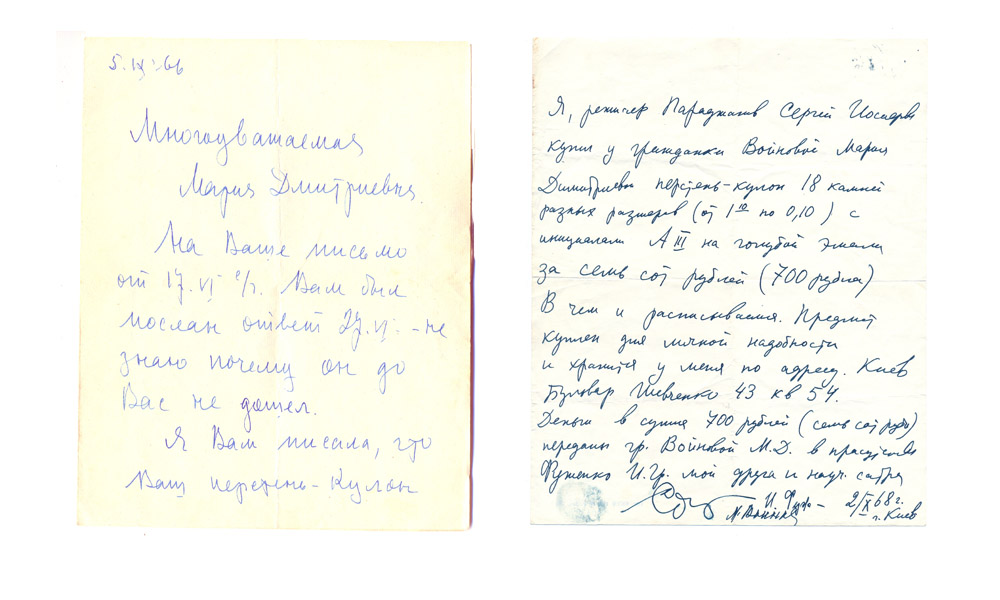 5.IX.66
Многоуважаемая
Мария Дмитриевна.
На Ваше письмо
от 17.VI с/г. Вам был
послан ответ 27.VI. - не
знаю почему он до
Вас не дошел.
Я Вам писала, что
Ваш перстень-кулон
Я, режиссер Параджанов Сергей Иосифович
купил у гражданки Войновой Марии
Димитриевны перстень-кулон 18 камней
разных размеров (от 1 по 0,10) с
инициалами А III на голубой эмали
за семь сот рублей (700 рублей)
В чем и расписываемся. Предмет
куплен для личной надобности
и хранится у меня по адресу. Киев
Бульвар Шевченко 43 кв 54.
Деньги в сумме 700 рублей (семь сот руб)
переданы гр. Войновой М.Д. в присутствии
И.Гр. мой друга и науч.
2/X 68 г.
г. Киев